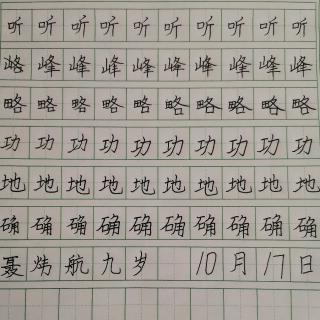 听听听听听听听听听听
峰峰峰峰峰峰峰峰峰
略略略略略略略略略略
功功功功功功功功功功
地地地地地地地地地地
确确确确确确确确确确
聂炜航九岁 10月17日